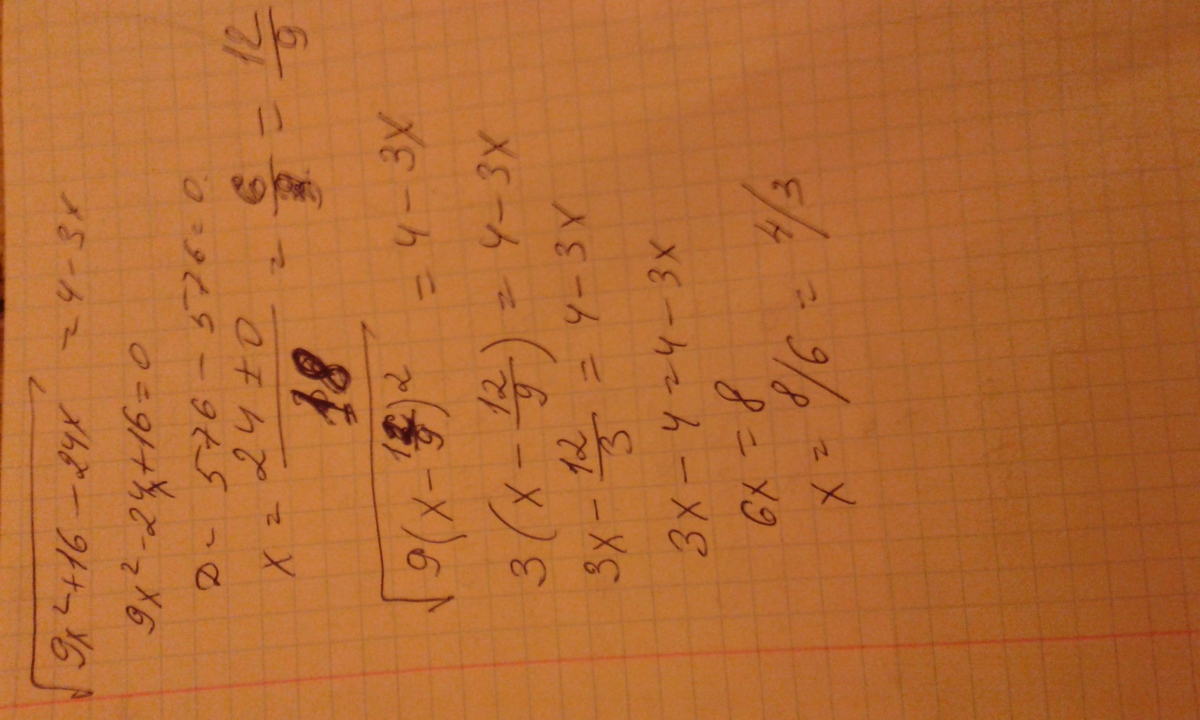 √(9x²+16-24x) = 4-3x
9x²-24x+16=0
D= 576-576=0.
x = (24±0)/18 = = 12/9
√(9(x-12/9)2) = 4-3x
3(x-12/9) = 4-3x
3x-12/3 = 4-3x
3x-4=4-3x
6x=8
x= 8/6 = 4/3